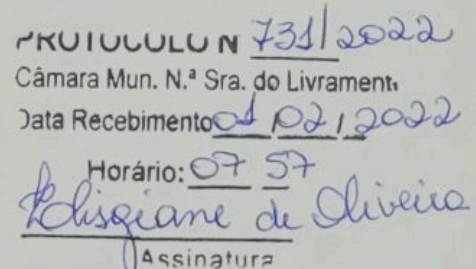 PROTOCOLO N 731/2022
Câmara Mun. N.ª Sra. do Livrament
Data Recebimento 01/02/2022
Horário: 07 57
Elisgiane de Oliveira
Assinatura